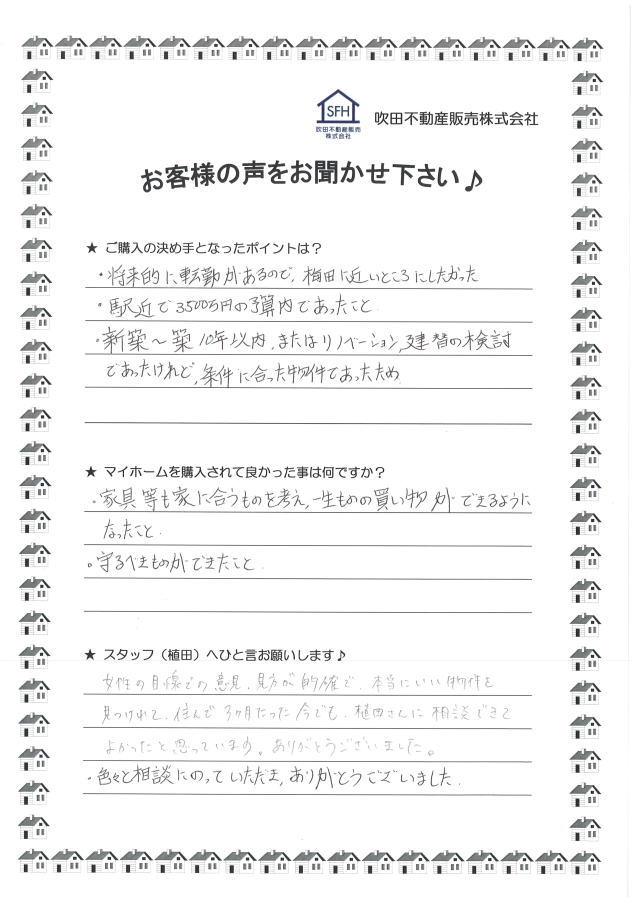 SFH
吹田不動産販売
株式会社
吹田不動産販売株式会社
お客様の声をお聞かせ下さい♪
★ ご購入の決め手となったポイントは？
・将来的に転勤があるので、梅田に近いところにしたかった
・駅近で3500万円の予算内であったこと
・新築～築10年以内、またはリノベーション、建替の検討
であったけれど、条件に合った物件であったため
★ マイホームを購入されて良かった事は何ですか？
・家具等も家に合うものを考え、一生ものの買い物ができるように
なったこと．
・守るべきものができたこと．
★ スタッフ（植田）へひと言お願いします♪
女性の目線での意見、見方が的確で、本当にいい物件を
見つけれて、住んで3ヶ月たった今でも、植田さんに相談できて
よかったと思っています。ありがとうございました。
・色々と相談にのっていただき、ありがとうございました．